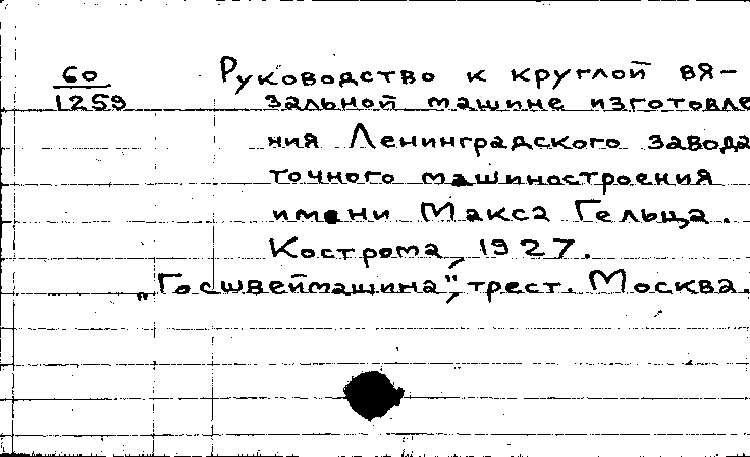 60
1259
Руководство к круглой вя-
зальной машине изготовле
ния Ленинградского завода
точного машиностроения
имени Макса Гельца.
Кострома, 1927.
„Госшвеймашина", трест. Москва.